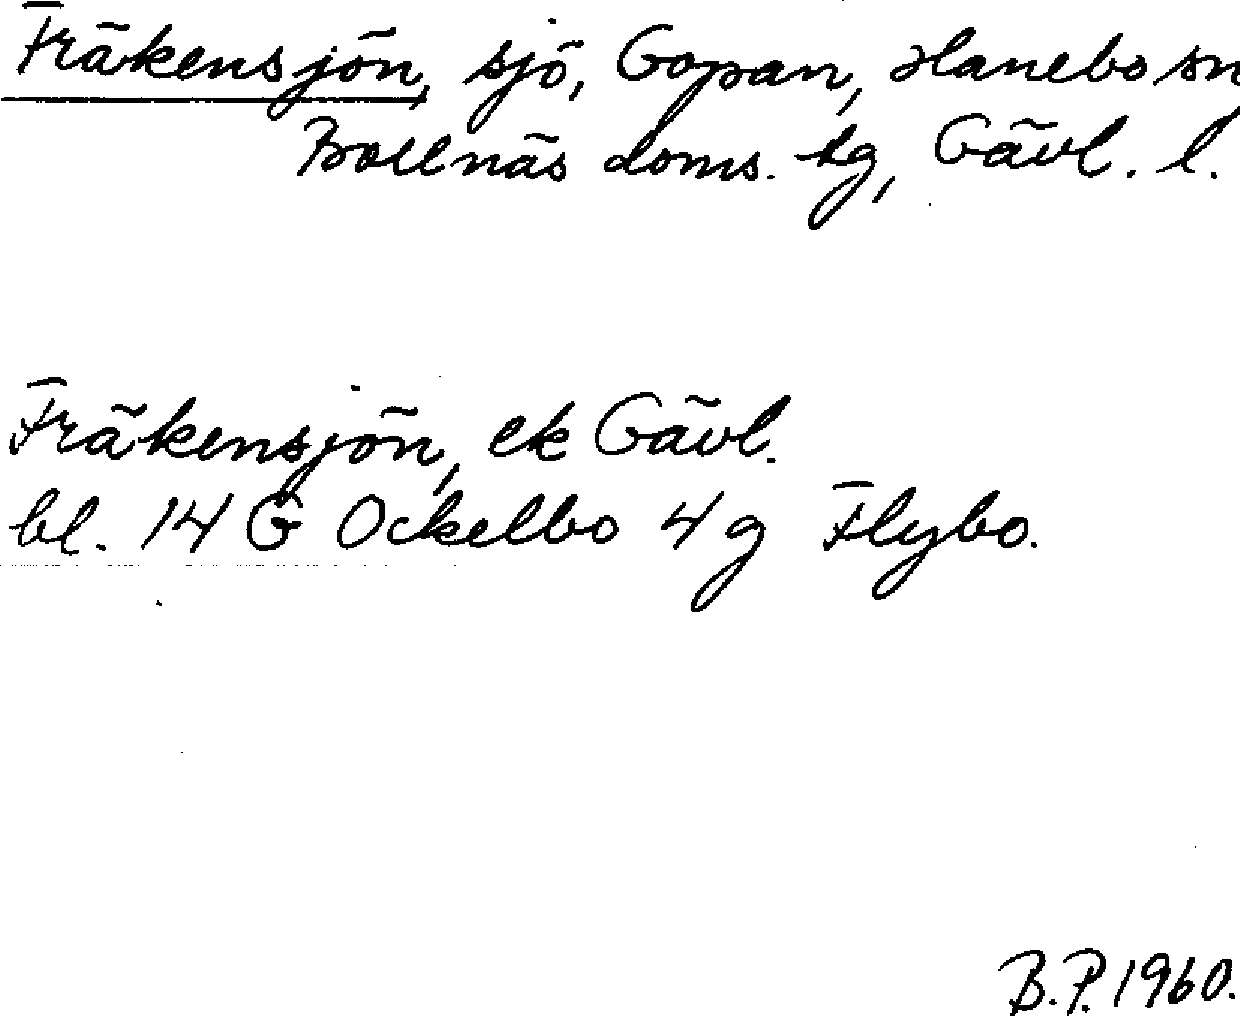 Fräkensjön, sjö, Gopan, Hanebo sn,
Bollnäs doms. tg, Gävl. l.
Fräkensjön, ek Gävl.
bl. 14 G Ockelbo 4 g Flybo.
B.P. 1960.